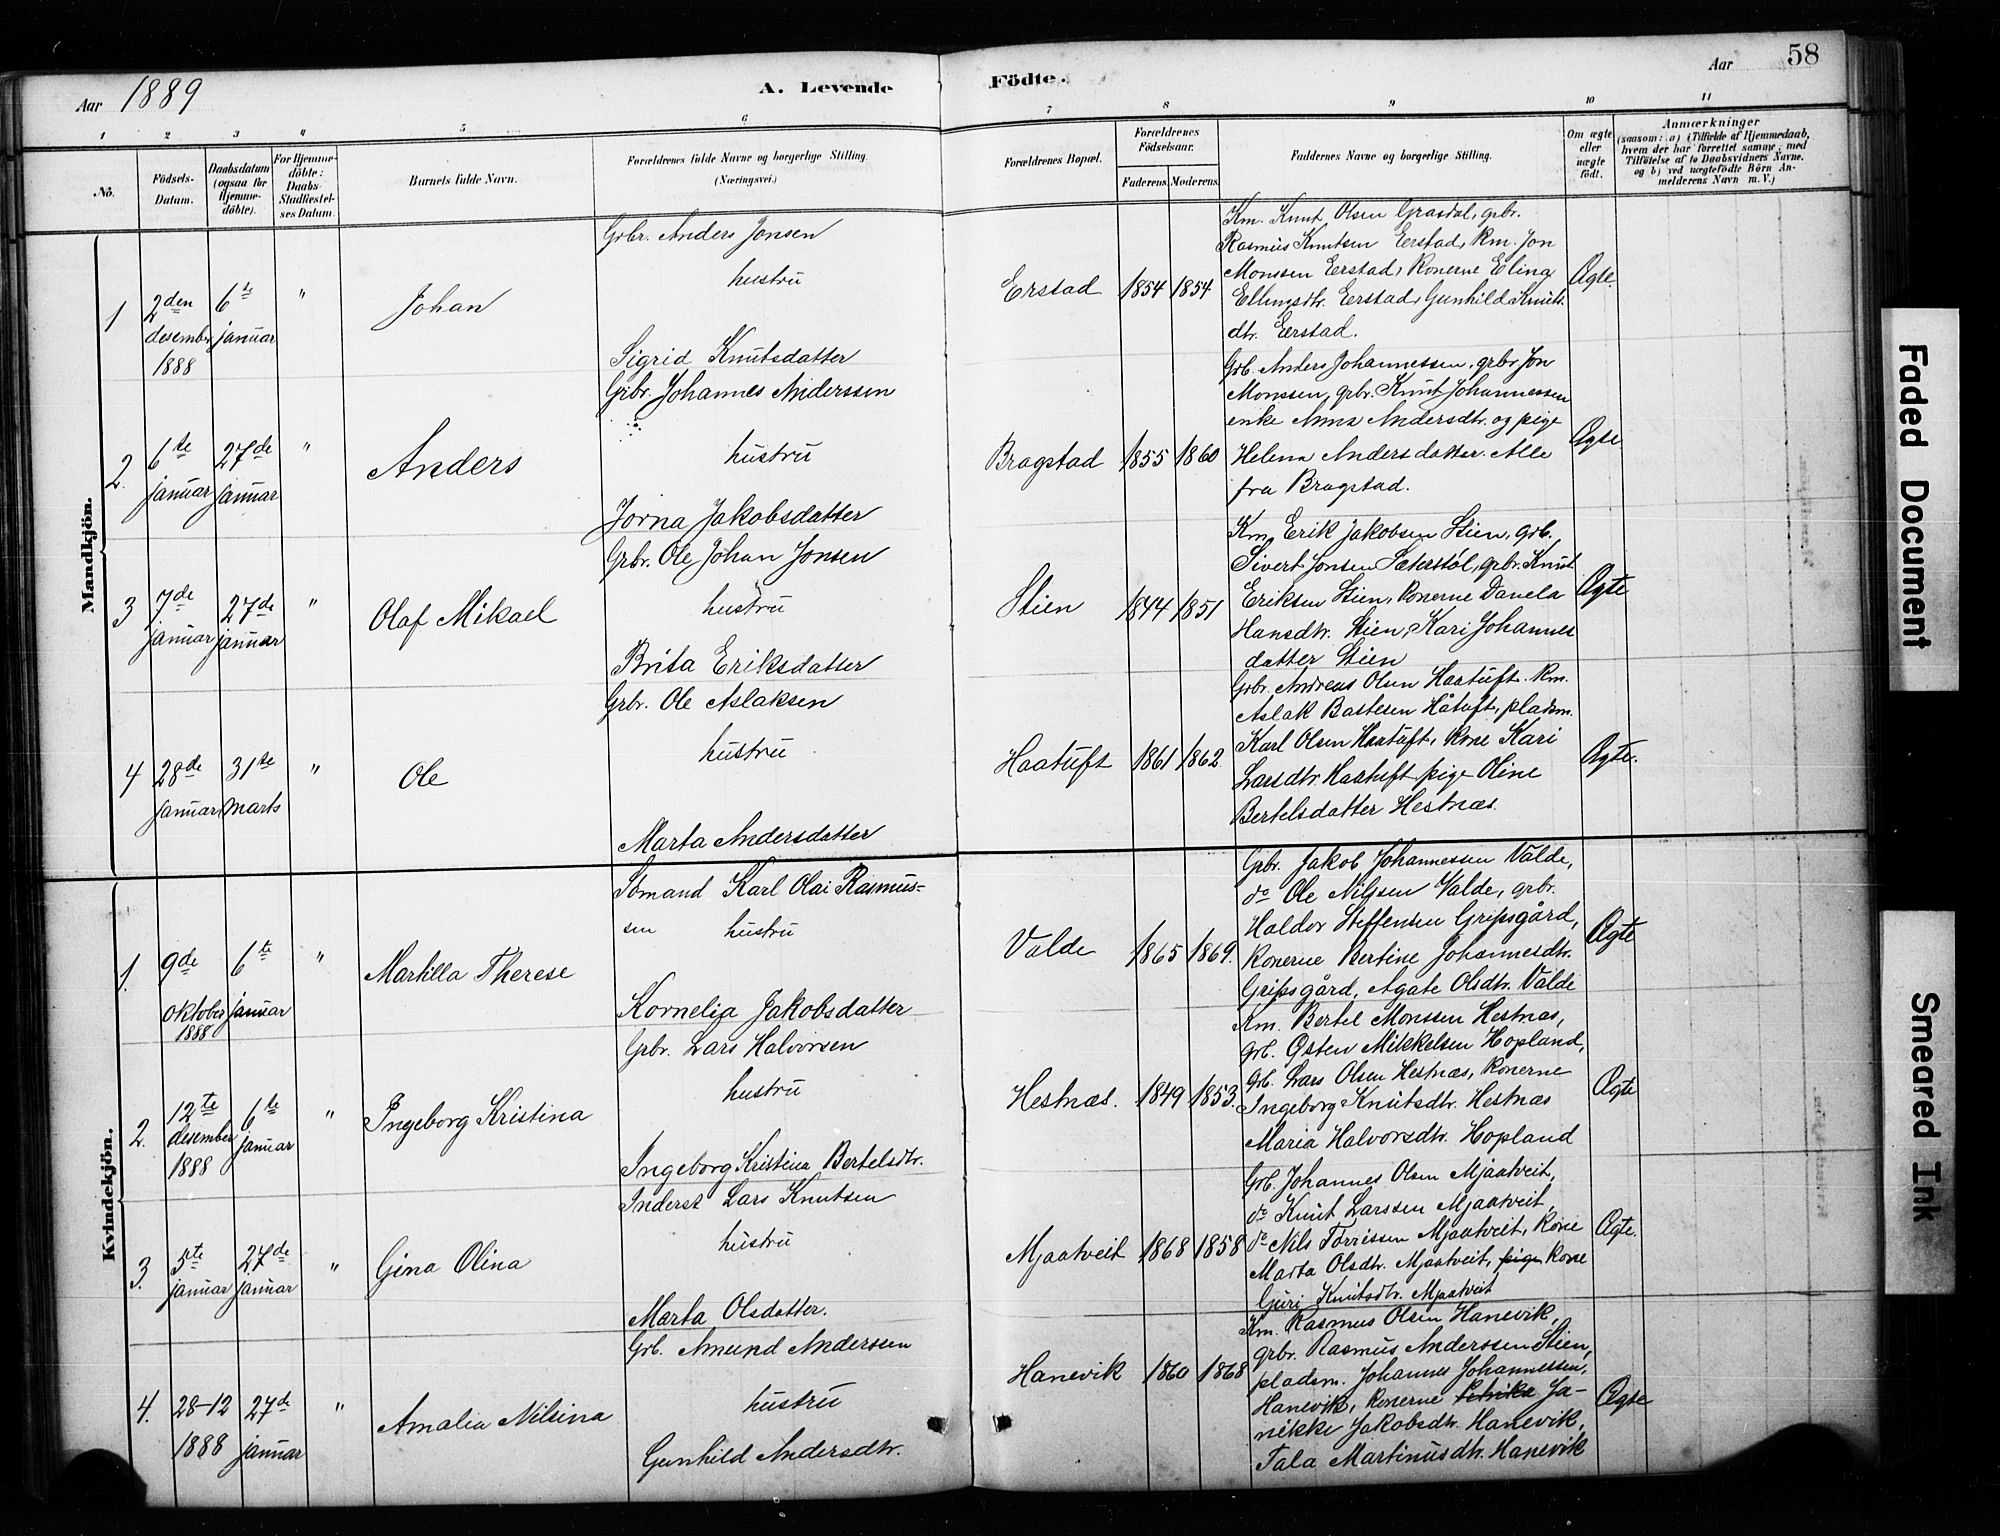 58
Aar 1889
A. Levende
Födte.
Aar
1
2
3
4
5
6
7
8
9
10
11
No.
Födsels-
Datum.
Daabsdatum
(ogsaa for
Hjemme-
döbte).
For Hjemme-
döbte:
Daabs-
Stadfæstel-
ses Datum.
Barnets fulde Navn.
Forældrenes fulde Navne og borgerlige Stilling.
(Næringsvei.)
Forældrenes Bopæl.
Forældrenes
Födselsaar.
Faderens.
Moderens.
Faddernes Navne og borgerlige Stilling.
Om ægte
eller
uægte
født.
Anmærkninger
(saasom: a) i Tilfælde af Hjemmedaab,
hvem der har forrettet samme, med
Tilföielse af to Daabsvidners Navne,
og b) ved uægtefödte Börn An-
melderens Navn m. V.)
Mandkjön.
1
2den
desember
1888
6te
januar
"
Johan
Grbr. Anders Jonsen
hustru
Sigrid Knutsdatter
Erstad
1854
1854
Km. Knut Olsen Grasdal, grbr.
Rasmus Knutsen Eerstad, Km. Jon
Monssen Eerstad, Konerne Elina
Ellingsdtr. Eerstad, Gunhild Knuts
dtr. Eerstad.
Ægte.
2.
6te
januar
27de
januar
"
Anders
Grbr. Johannes Anderssen
hustru
Jorna Jakobsdatter
Bragstad
1855
1860
Grb. Anders Johannessen, grbr Jon
Monssen, grbr. Knut Johannessen
enke Anna Andersdtr. og pige
Helena Andersdatter. Alle
fra Bragstad.
Ægte
3
7de
januar
27de
januar
"
Olaf Mikael
Grbr. Ole Johan Jonsen
hustru
Brita Eriksdatter
Stien
1844
1851
Km. Erik Jakobsen Stien, grb.
Sivert Jonsen Sæterstøl, grbr. Knut
Eriksen Stien, Konerne Danela
Hansdtr. Stien, Kari Johannes
datter Stien
Ægte
4
28de
januar
31te
marts
"
Ole
Grbr. Ole Aslaksen
hustru
Marta Andersdatter
Haatuft
1861
1862
Grbr. Andreas Olsen Haatuft. Km.
Aslak Bastesen Håtuft, pladsm.
Karl Olsen Haatuft, Kone Kari
Larsdtr. Haatuft pige Oline
Bertelsdatter Hestnæs.
Ægte.
Kvindekjön.
1.
9de
oktober
1888
6te
januar
"
Martilla Therese
Sömand Karl Olai Rasmus-
sen hustru
Kornelia Jakobsdatter
Valde
1865
1869.
Grbr. Jakob Johannessen Valde,
do Ole Nilssen Valde, grbr.
Haldor Steffensen Gripsgård,
Konerne Bertine Johannesdtr.
Gripsgård, Agate Olsdtr. Valde
Ægte
2.
12te
desember
1888
6te
januar
"
Ingeborg Kristina
Grbr. Lars Halvorsen
hustru
Ingeborg Kristina Bertelsdtr.
Hestnæs.
1849
1853
Km. Bertel Monssen Hestnæs,
grb. Østen Mikkelsen Hopland,
grb. Lars Olsen Hestnæs, Konerne
Ingeborg Knutsdtr. Hestnæs
Maria Halvorsdtr. Hopland
Ægte
3.
5te
januar
27de
januar
"
Gina Olina
Inderst Lars Knutsen
hustru
Marta Olsdatter.
Mjaatveit
1868
1858
Grb. Johannes Olsen Mjaatveit,
do Knut Larssen Mjaatveit,
do Nils Torrissen Mjaatveit, Kone
Marta Olsdtr. Mjaatveit, pige Kone
Guri Knutsdtr. Mjaatveit
Ægte.
4.
28-12
1888
27de
januar
"
Amalia Nilsina
Grb. Amund Anderssen
hustru
Gunhild Andersdtr.
Hanevik
1860
1868
Km. Rasmus Olsen Hanevik,
grbr. Rasmus Anderssen Stien,
pladsm. Johannes Johannessen,
Hanevik, Konerne Petrika Ja-
nikke Jakobsdtr. Hanevik,
Tala Martinusdtr. Hanevik
Ægte
Faded Document
Smeared Ink